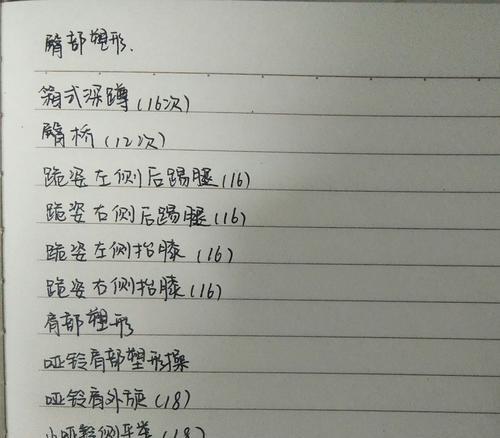 臀部塑形.
箱式深蹲(16次)
臀桥(12次)
跪姿左侧后踢腿(16)
跪姿右侧后踢腿(16)
跪姿左侧抬膝(16)
跪姿右侧抬膝(16)
肩部塑形
哑铃肩部塑形操
哑铃肩外旋(18)
小哑铃侧平举(18)